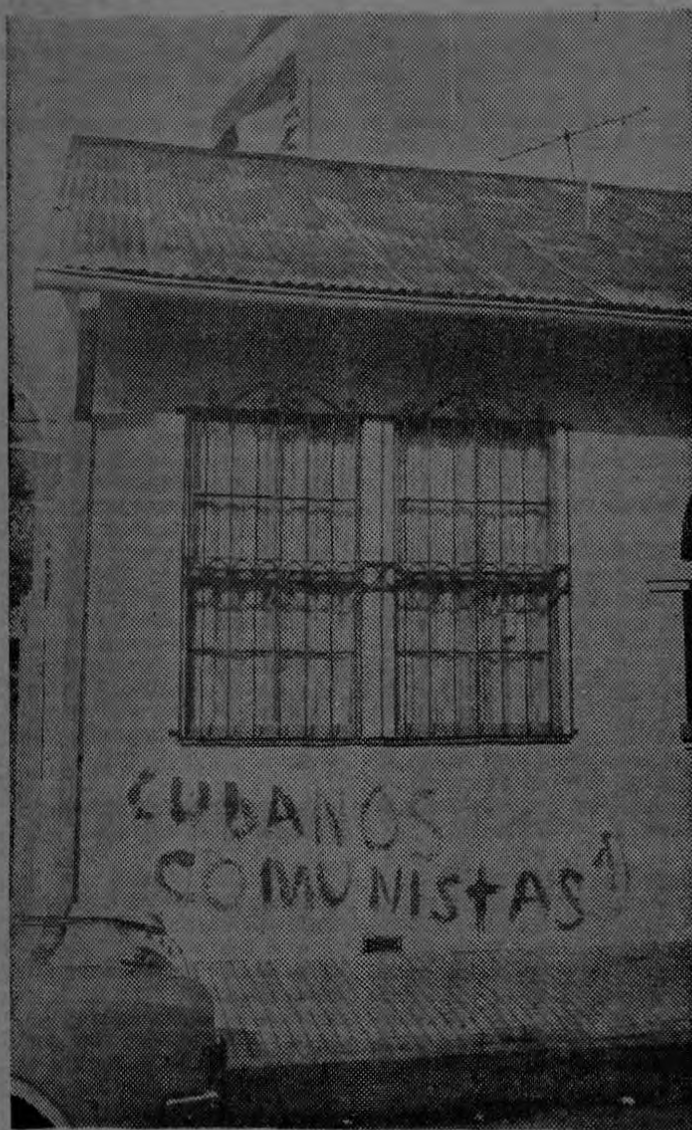 CUBANOS
COMUNIStAS